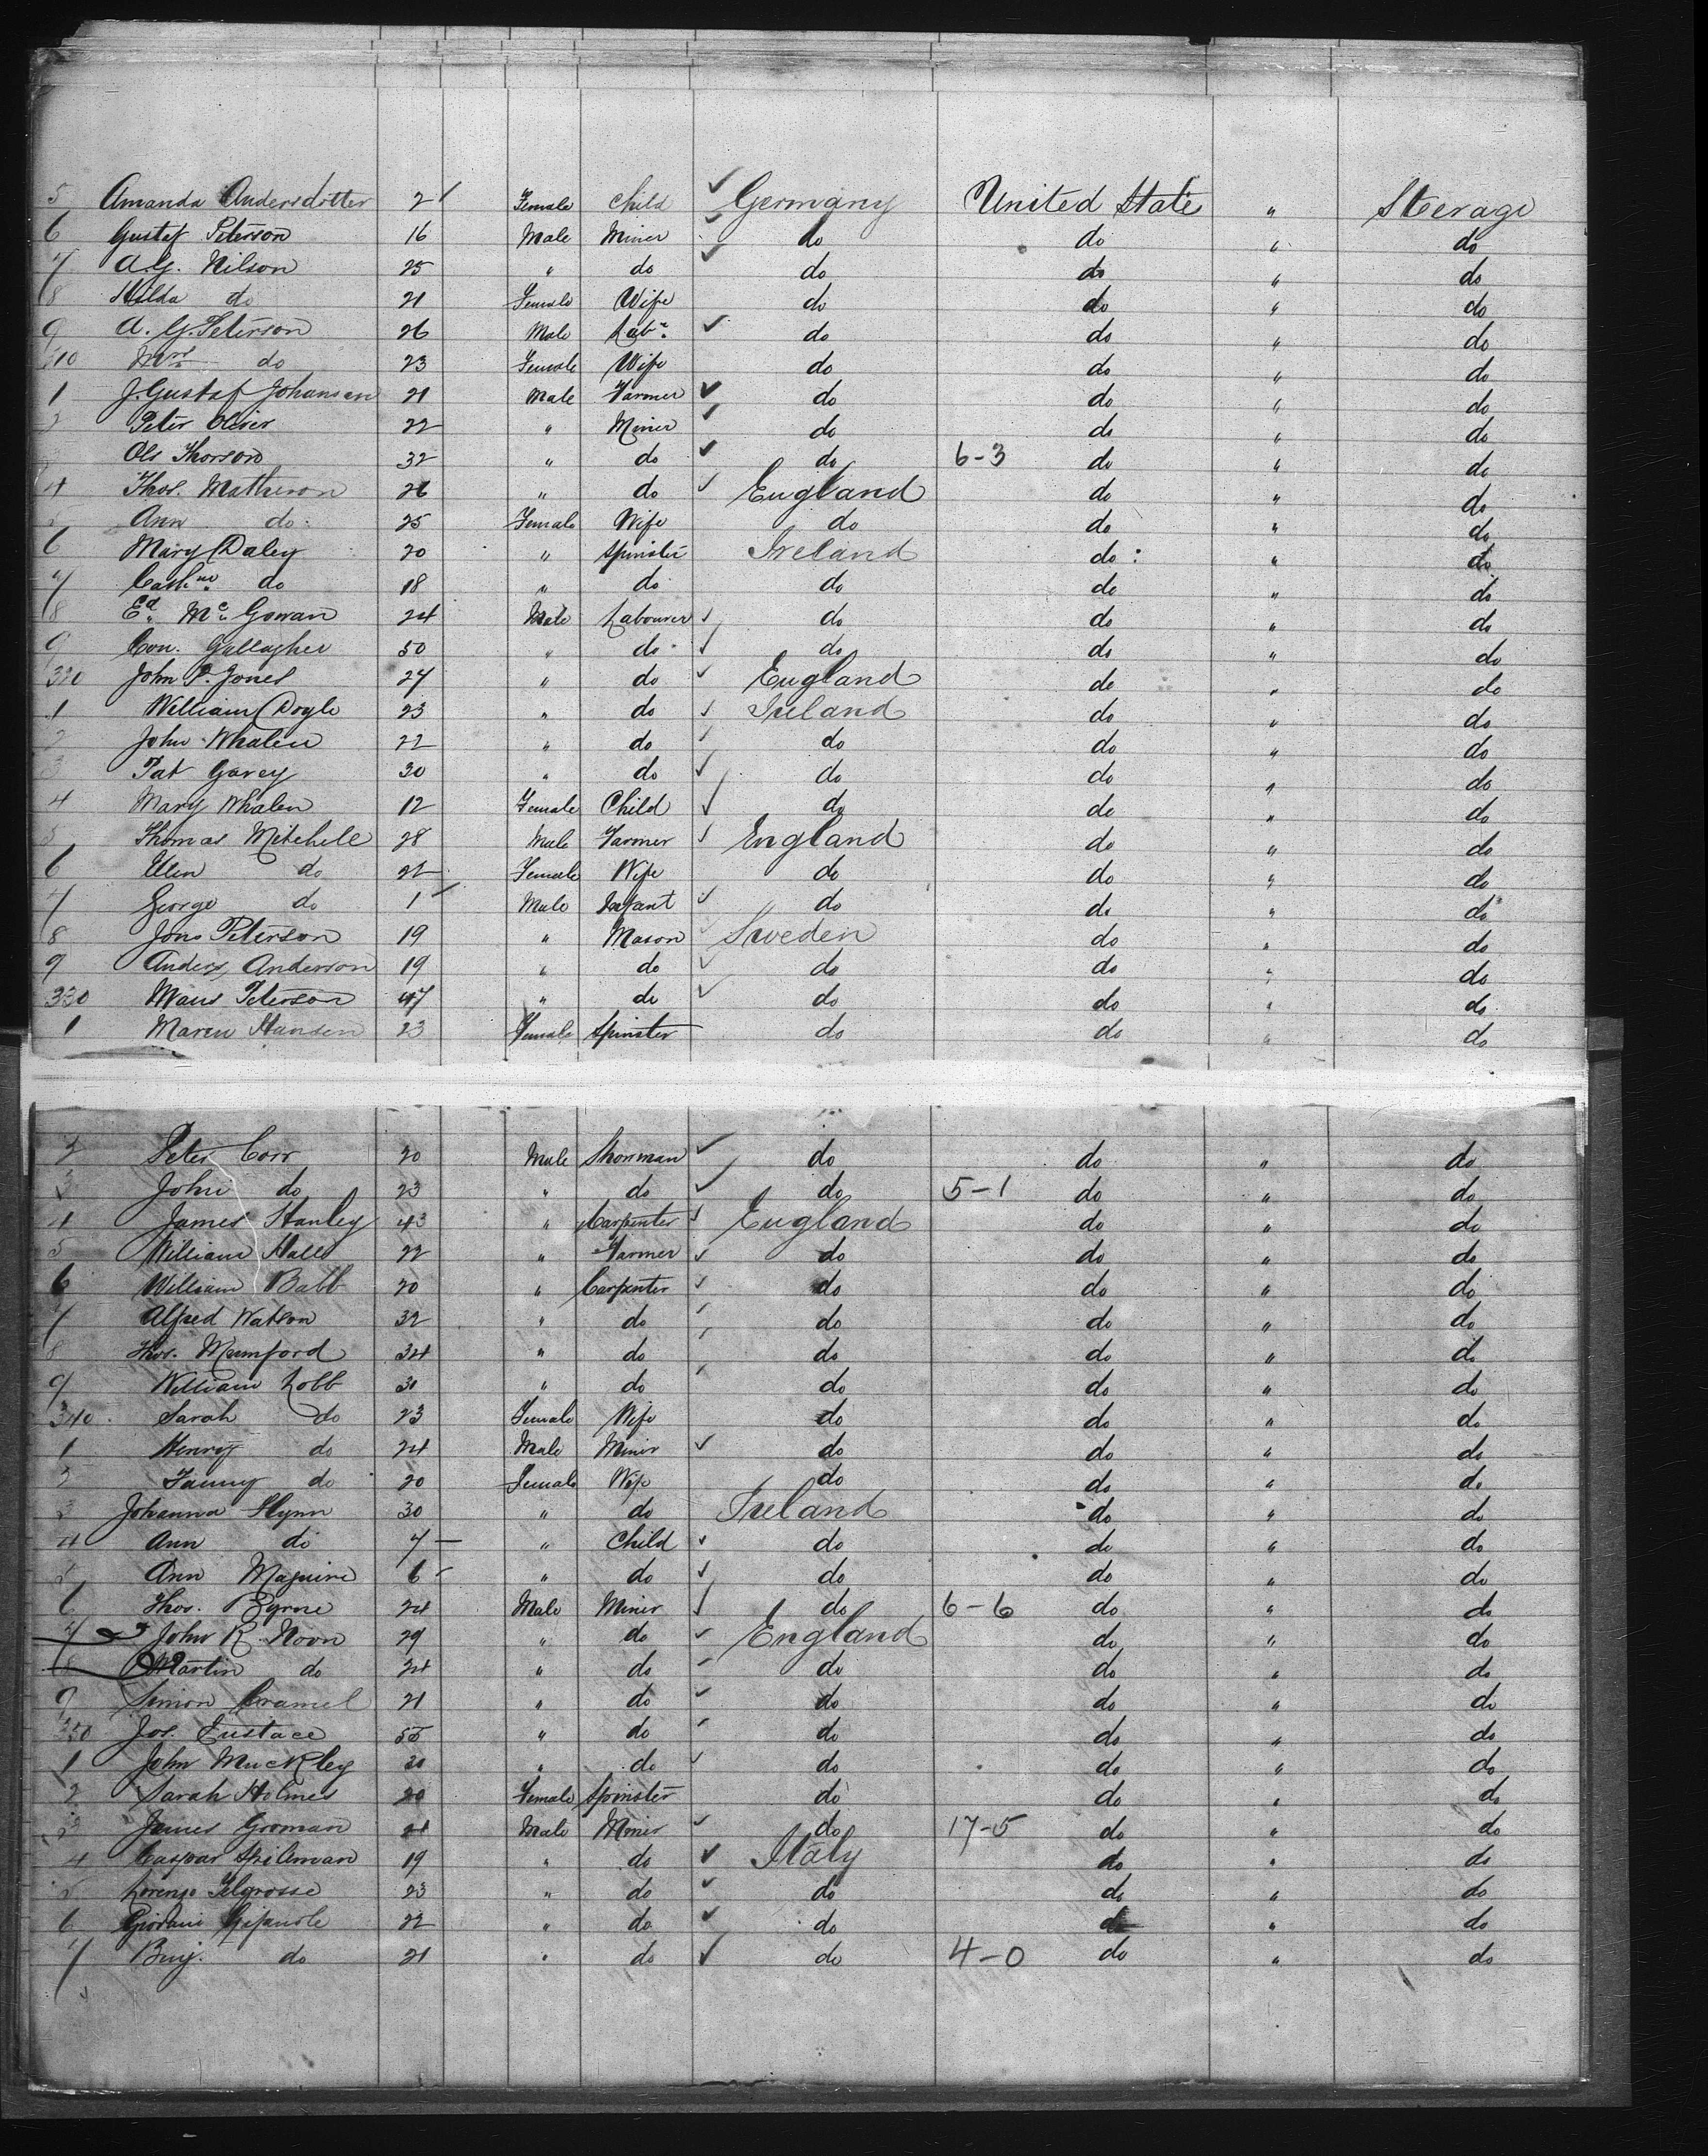 5 Amanda Andersdotter 2 Female Child Germany United State " Sterage
6 Gustaf Peterson 16 Male Miner do do " do
7 A.G. Nilson 25 " do do do " do
8 Hilda do 21 Female Wife do do " do
9 A. G. Peterson 26 Male Labr. do do " do
310 Mrs do 23 Female Wife do do " do
1 J. Gustaf Johansen 21 Male Farmer do do " do
2 Peter Oliver 22 " Miner do do " do
Ole Thorson 32 " do do 6-3 do " do
4 Thos. Matheson 26 " do England do " do
5 Ann do 25 Female Wife do do " do
6 Mary Daley 20 " Spinster Ireland do " do
7 Cathne do 18 " do do do " do
8 Ed. Mc Gowan 24 Male Labourer do do " do
9 Con. Gallagher 50 " do do do " do
320 John P. Jones 27 " do England do " do
1 William Doyle 23 " do Ireland do " do
2 John Whalen 22 " do do do " do
3 Pat Garey 30 " do do do " do
4 Mary Whalen 12 Female Child do do " do
5 Thomas Mitchell 28 Male Farmer England do " do
6 Ellen do 22 Female Wife do do " do
7 George do 1 Male Infant do do " do
8 Jons Peterson 19 " Mason Sweden do " do
9 Anders Anderson 19 " do do do " do
330 Mans Peterson 47 " do do do " do
1 Maren Hansen 23 Female Spinster do do " do
2 Peter Corr 20 Male Showman do do " do
3 John do 23 " do do 5-1 do " do
4 James Stanley 43 " Carpenter England do " do
5 William Halls 22 " Farmer do do " do
6 William Babb 20 " Carpenter do do " do
7 Alfred Watson 32 " do do do " do
8 Thos. Mumford 34 " do do do " do
9 William Lobb 31 " do do do " do
340 Sarah do 23 Female Wife do do " do
1 Henry do 24 Male Miner do do " do
2 Fanny do 20 Female Wife do do " do
3 Johanna Flynn 30 " do Ireland do " do
4 Ann do 7 " Child do do " do
5 Ann Maguire 6 " do do do " do
6 Thos. Byrne 24 Male Miner do 6-6 do " do
7 John R. Noon 29 " do England do " do
8 Martin do 24 " do do do " do
9 Simon Cramel 21 " do do do " do
350 Jos. Eustace 55 " do do do " do
1 John Muckley 30 " do do do " do
2 Sarah Holmes 20 Female Spinster do do " do
3 James Groman 21 Male Miner do 17-5 do " do
4 Caspar Spilman 19 " do Italy do " do
5 Lorenzo 23 " do do do " do
6 Giovani 22 " do do do " do
7 Benj. do 21 " do do 4-0 do " do